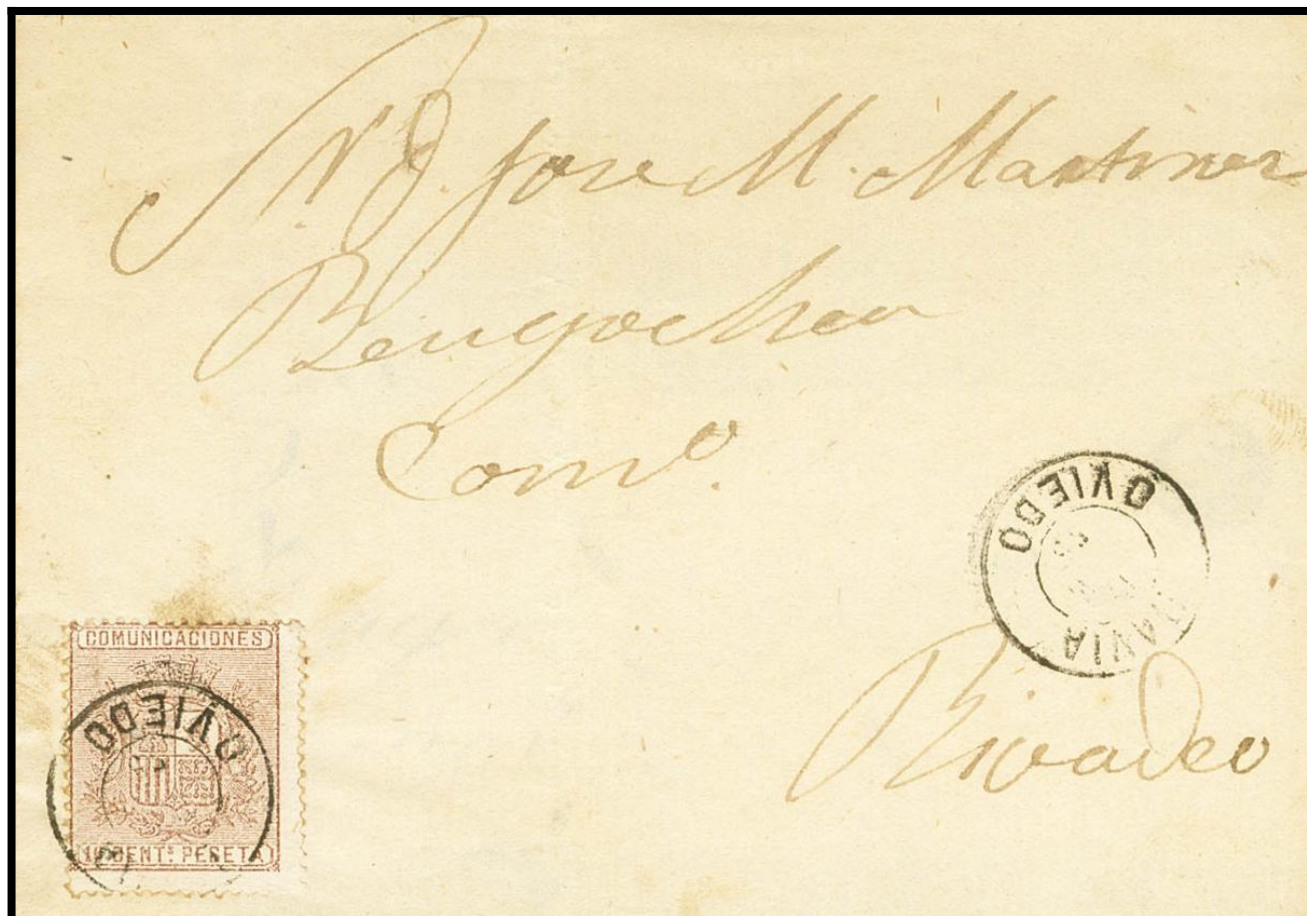 Sr. D. Jose M. Martinez
Bengochea
Como.
OVIEDO
Rivadeo
COMUNICACIONES
OVIEDO
10 CENTS PESETA